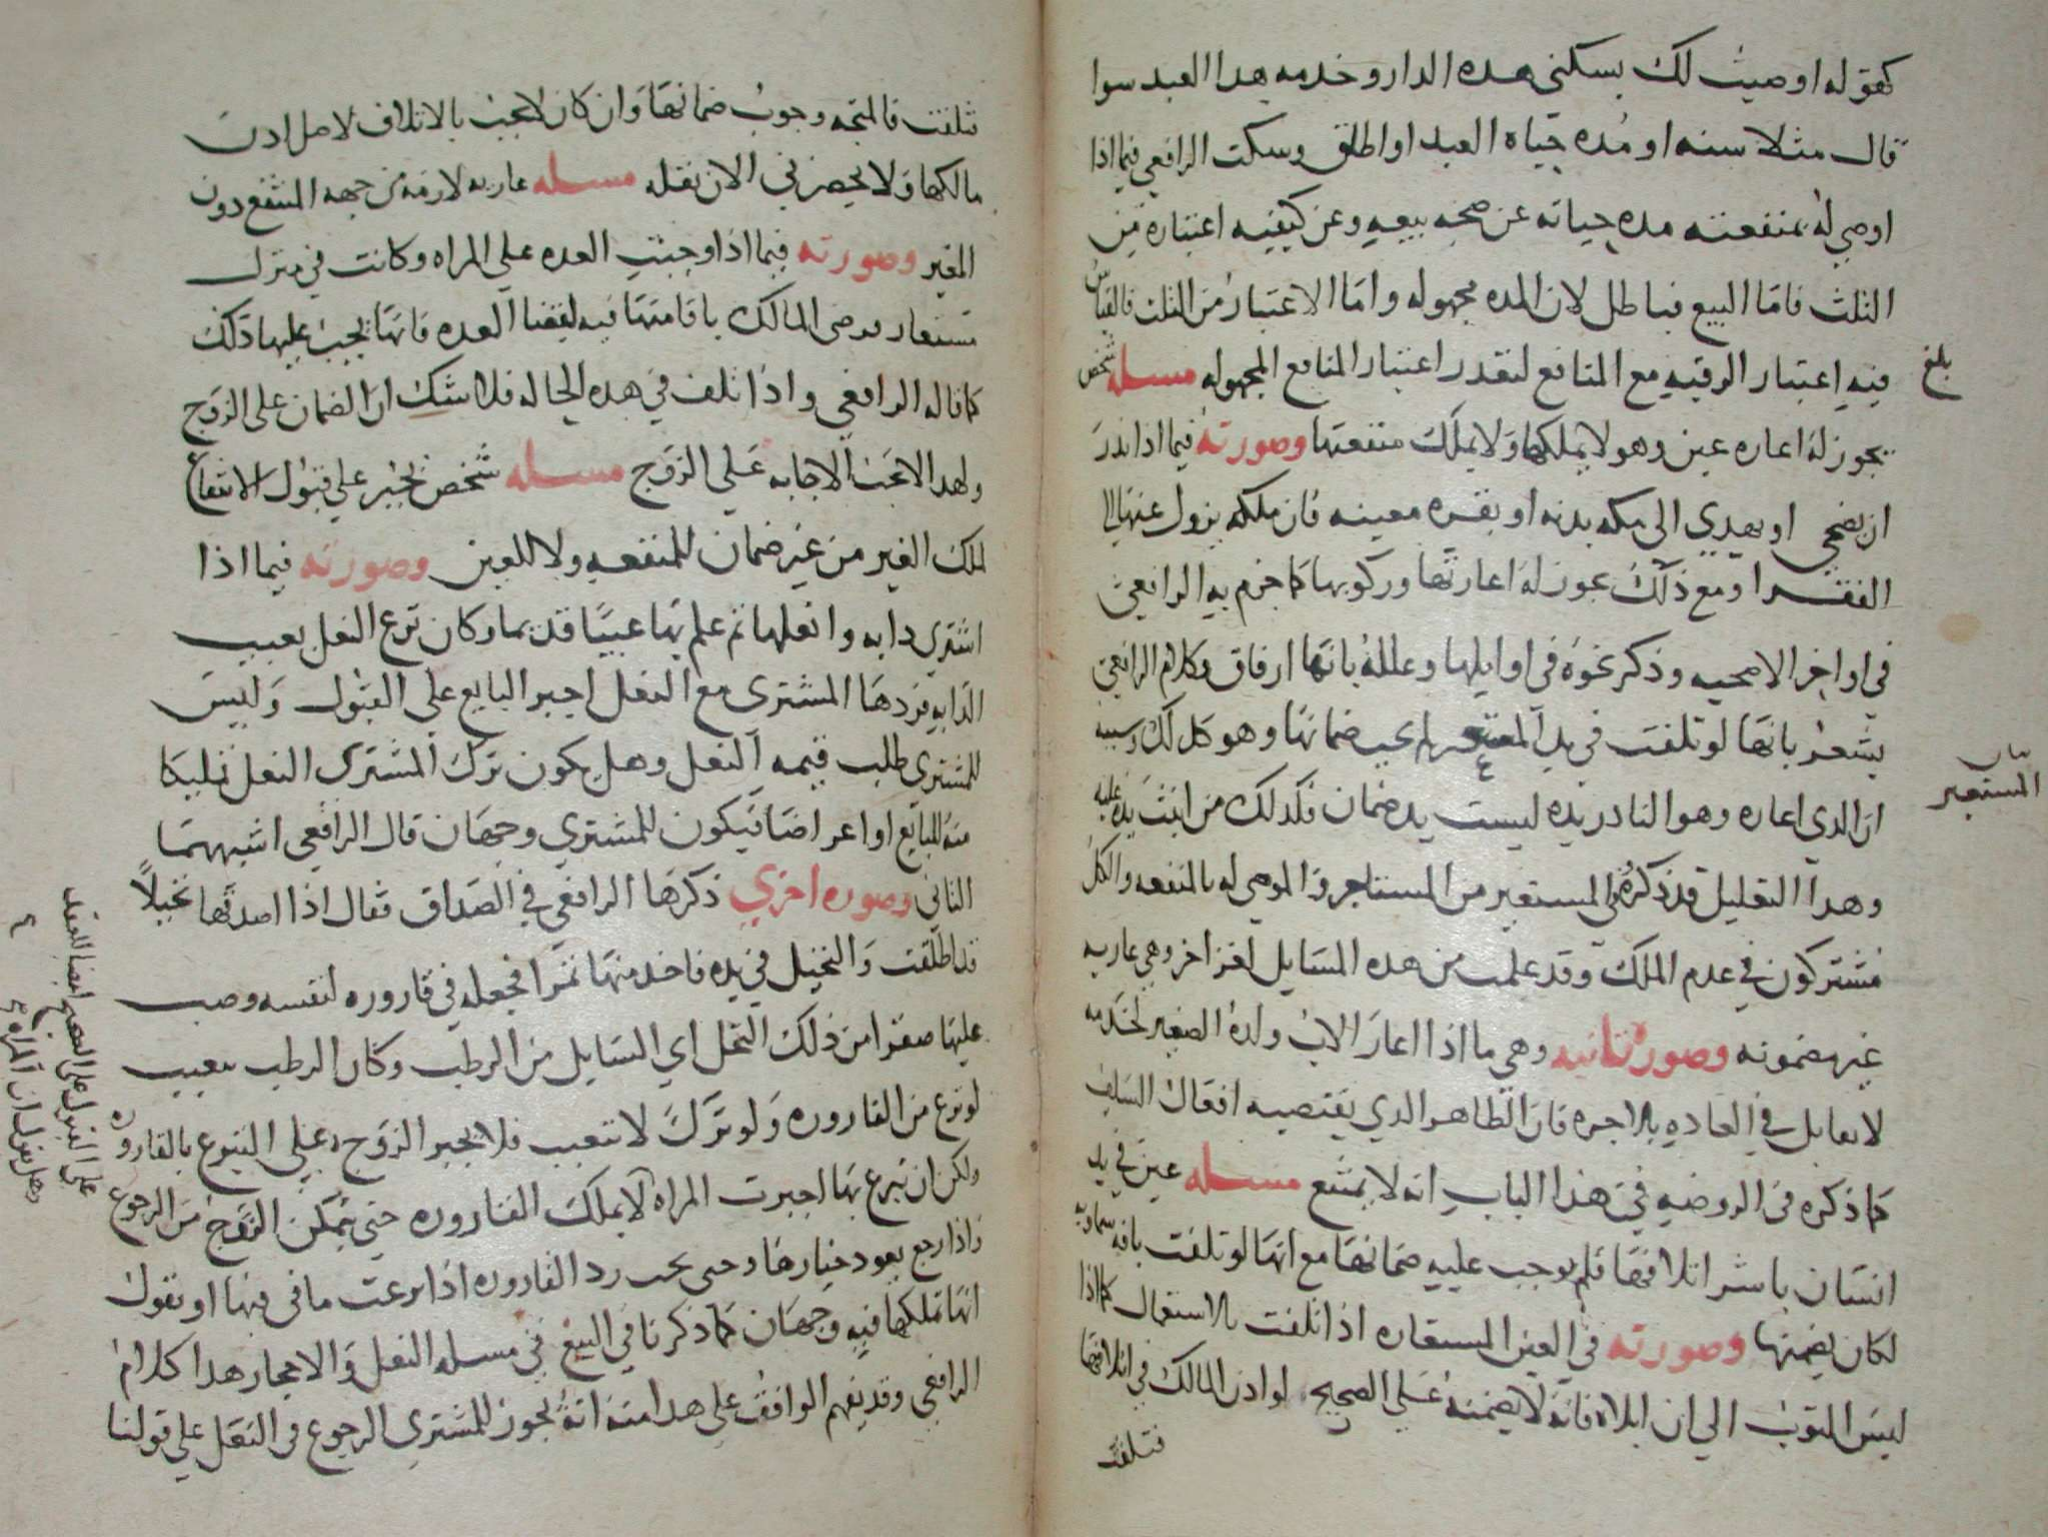 كقوله اوصيت لك بسكنى هده الدار وخدمه هدا العبد سوا
قال مثلا سنه او مُده حياه العبد او اطلق وسكت الرافعي فيما اذا
اوصى له بمنفعته مده حياته عن صحه بيعه وعن كيفيه اعتباره من
الثلث فامّا البيع فباطل لان المده مجهوله وامّا الاعتبار من الثلث فالقياس
فيه اعتبار الرقبه مع المنافع لتعدر اعتبار المنافع المجهوله مسله شخص
بلغ
يجوز له اعاره عين وهو لا يملكها ولا يملك منفعتها وصورته فيما ادا ندر
ان يضحي او يهدي الى مكه بدنه او بقره معينه فان ملكه يزول عنها الى
الفقرا ومع ذلك يجوز له اعارتها وركوبها كما جزم به الرافعي
في اواخر الاضحيه وذكر نحوه في اوايلها وعلله بانها ارفاق وكلام الرافعي
يشعر بانها لو تلفت في يد المستعير لم يجب ضمانها وهو كذلك وسببه
بيان
المستعير
ان الدي اعاره وهو النادر يده ليست يد ضمان فكدلك من اثبت يده عليه
وهدا التعليل قد ذكروه في المستعير من المستاجر والموصى له بالمنفعه والكل
مشتركون في عدم الملك وقد علمت من هده المسايل لغزا اخر وهي عاريه
غير مضمونه وصوره ثانيه وهي ما اذا اعار الاب ولده الصغير لخدمه
لا تقابل في العاده بالاجره فان الظاهر الدي يقتضيه افعال السلف
كما ذكره في الروضه في هذا الباب انه لا يمتنع مسله عين في يد
انسان باشر اتلافها فلم يوجب عليه ضمانها مع انها لو تلفت بافه سماويه
لكان يضمنها وصورته في العين المستعاره اذا تلفت بالاستعمال كما اذا
لبس الثوب الى ان ابلاه فانه لا يضمنه على الصحيح لو ادن المالك في اتلافها
فتلفت
تتلفت فالمتجه وجوب ضمانها وان كان لا يجب بالاتلاف لاجل ادن
مالكها ولا يحضرني الان نقله مسله عاريه لازمه من جهه المنتفع دون
المعير وصورته فيما اذا وجبت العده على المراه وكانت في منزل
مستعار فرضى المالك باقامتها فيه لقضا العده فانها يجب عليها ذلك
كما قاله الرافعي واذا تلف في هده الحاله فلا شك ان الضمان على الزوج
ولهدا لا تجب الاجابه على الزوج مسله شخص يجبر على قبول الانتفاع
لملك الغير من غير ضمان للمنفعه ولا للعين وصورته فيما اذا
اشترى دابه وانعلها ثم علم بها عيبًا قديما وكان نزع النعل يعيب
الدابه فردها المشترى مع النعل اجبر البايع على القبول وليس
للمشترى طلب قيمه النعل وهل يكون ترك المشترى النعل تمليكا
منه للبايع او اعراضا فيكون للمشتري وجهان قال الرافعي اشبههما
الثاني وصوره اخرى ذكرها الرافعي في الصداق فقال اذا اصدقها نخيلاً
فاطلقت والنخيل في يده فاخد منها تمرا فجعله في قاروره لنفسه وصب
عليها صقرا من ذلك النخل اي السايل من الرطب وكان الرطب يعيب
لو نزع من القاروره ولو ترك لا تتعيب فلا يجبر الزوج على التبرع بالقاروره
ولكن ان تبرع بها اجبرت المراه لا بملك القاروره حتى يتمكن الزوج من الرجوع
واذا رجع يعود خيارها وحتى يجب رد القاروره اذا نزعت ما فيها او نقول
انها تملكها فيه وجهان كما ذكرنا في البيع في مسله النعل والاحجار هدا كلام
الرافعي وقد يفهم الواقف على هدا منه انه يجوز للمشتري الرجوع في النعل على قولنا
على القبول على الصحيح ايضا للعقد
وهل نقول ان المراه